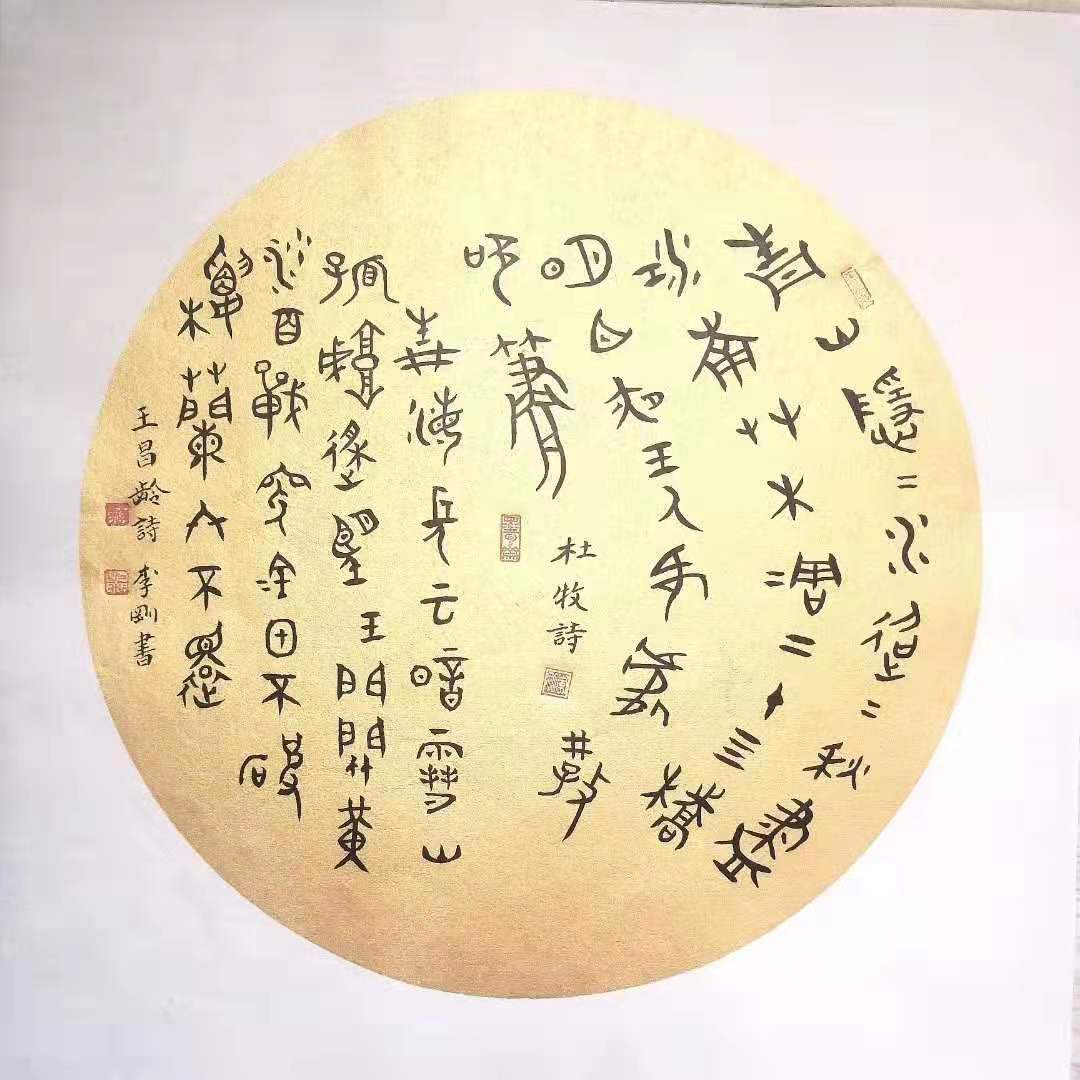 青山隱=水迢=秋盡
江南艸木凋二十四橋
明月夜玉人何處教
吹簫
杜牧詩
青海長云暗雪山
孤城遙望玉門關黃
沙百戰穿金甲不破
樓蘭終不還
王昌齡詩 李剛書